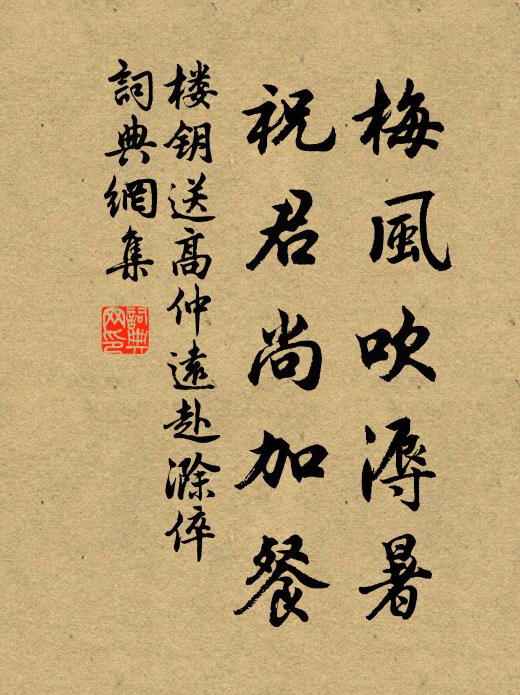 梅風吹溽暑
祝君尚加餐
楼钥送高仲遠赴滁倅
詞典網集
詞典网印